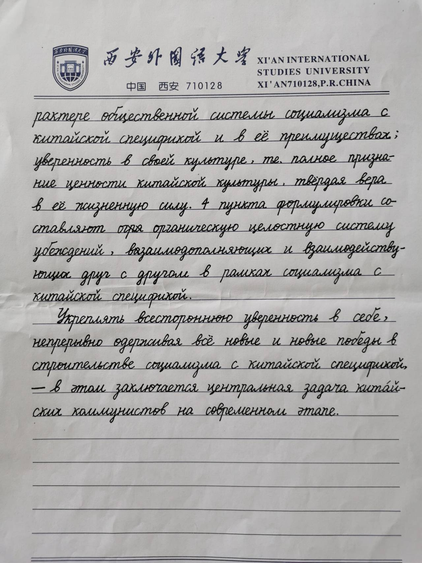 西安外国语大学
XI'AN INTERNATIONAL
STUDIES UNIVERSITY
中国 西安 710128
XI'AN710128,P.R.CHINA
рактере общественной системы социализма с
китайской спецификой и в её преимуществах;
уверенность в своей культуре, те. полное призна-
ние ценности китайской культуры, твёрдая вера
в её жизненную силу. 4 пункта формулировки со-
ставляют органическую целостную систему
убеждений, взаимодополняющих и взаимодейству-
ющих друг с другом в рамках социализма с
китайской спецификой.
Укреплять всестороннюю уверенность в себе,
непрерывно одерживая всё новые и новые победы в
строительстве социализма с китайской спецификой,
— в этом заключается центральная задача китáй-
ских коммунистов на современном этапе.